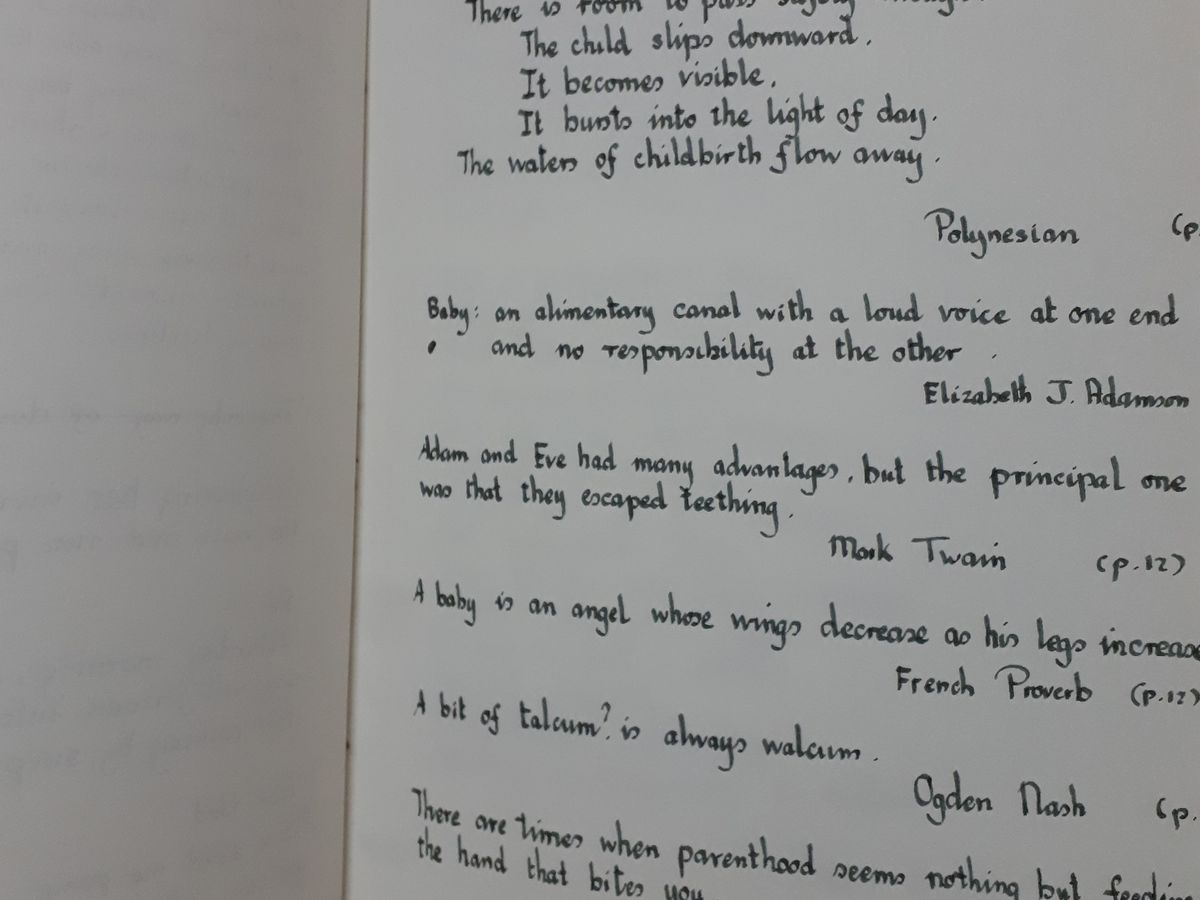 There is room to pass
The child slips downward.
It becomes visible.
It bursts into the light of day.
The waters of childbirth flow away.
Polynesian (p.
Baby: an alimentary canal with a loud voice at one end
and no responsibility at the other.
Elizabeth J. Adamson
Adam and Eve had many advantages, but the principal one
was that they escaped teething.
Mark Twain (p.12)
A baby is an angel whose wings decrease as his legs increase
French Proverb (p.12)
A bit of talcum? is always walcum.
Ogden Nash (p.
There are times when parenthood seems nothing but feeding
the hand that bites you